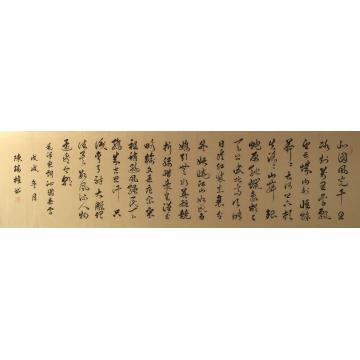 北国風光千里
冰封万里雪飘
望长城内外惟馀
莽莽大河上下頓
失滔滔山舞银
蛇原驰蜡象欲与
天公试比高须晴
日看红装素裹分
外妖娆江山如此多
娇引无数英雄竞
折腰惜秦皇漢武
略输文采唐宗宋
祖稍逊風骚一代天
骄成吉思汗只
识弯弓射大雕俱
往矣数風流人物
还看今朝
毛泽東词沁园春雪
戊戌冬月
陳